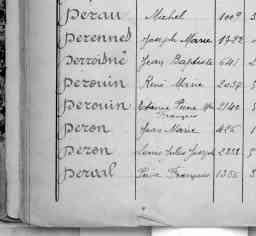 Perau Michel 1009
Perennes Joseph Marie
Perroidné Jean Baptiste 641
Perouin René Marie 2037
Perouin Etienne Pierre Mie 2140
François
Peron Jean Marie 426 1
Peron Louis Jules Joseph 2228
Perval François 1356